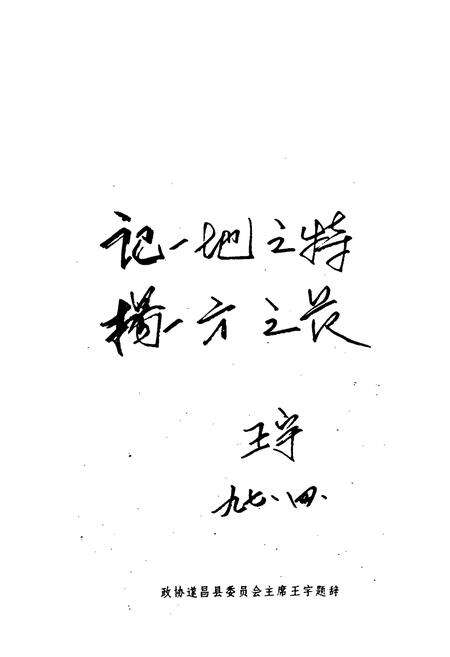 记一地之特
揚一方之長
王宇
九七.四.
政协遂昌县委员会主席王宇题辞